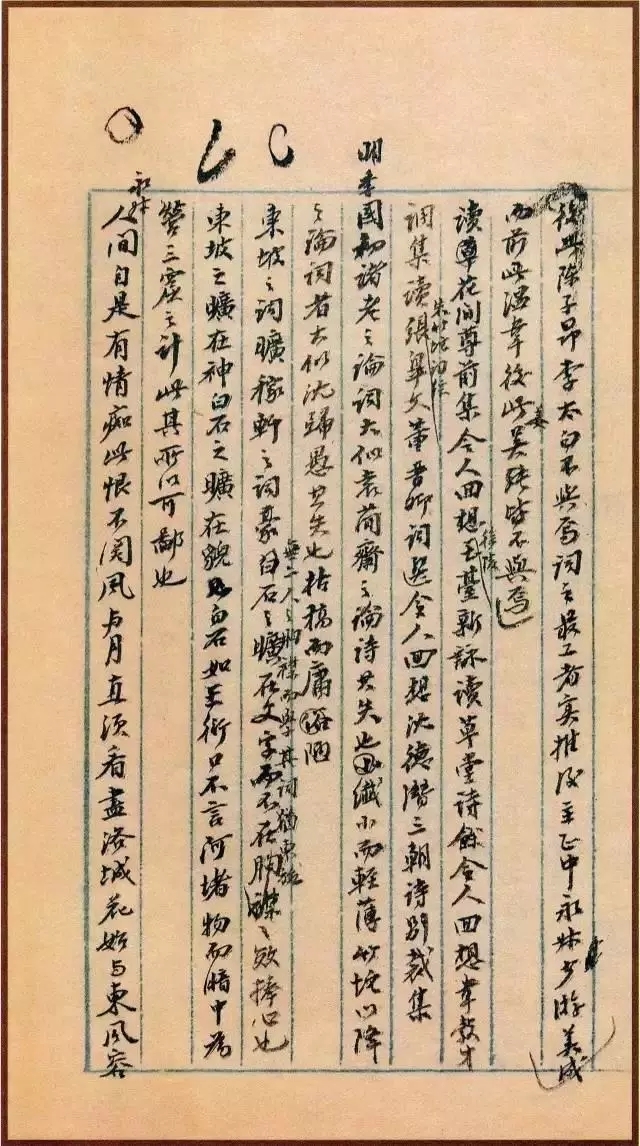 後此陳子昂李太白不與焉詞之最工者實推後主正中永叔少游美成
而前此溫韋後此姜吳皆不與焉
讀花間尊前集令人回想徐陵玉臺新詠讀草堂詩餘令人回想韋縠才
調集讀朱竹垞詞綜張皋文董晉卿詞選令人回想沈德潛三朝詩別裁集
明季國初諸老之論詞大似袁簡齋之論詩其失也纖小而輕薄竹垞以降
之論詞者大似沈歸愚其失也枯槁而庸陋
東坡之詞曠稼軒之詞豪無二人之胸襟而學其詞猶東施之效捧心也
白石之曠在文字而不在胸襟
東坡之曠在神白石之曠在貌白石如王衍口不言阿堵物而暗中為
營三窟之計此其所以可鄙也
永叔
人間自是有情癡此恨不關風與月直須看盡洛城花始與東風容